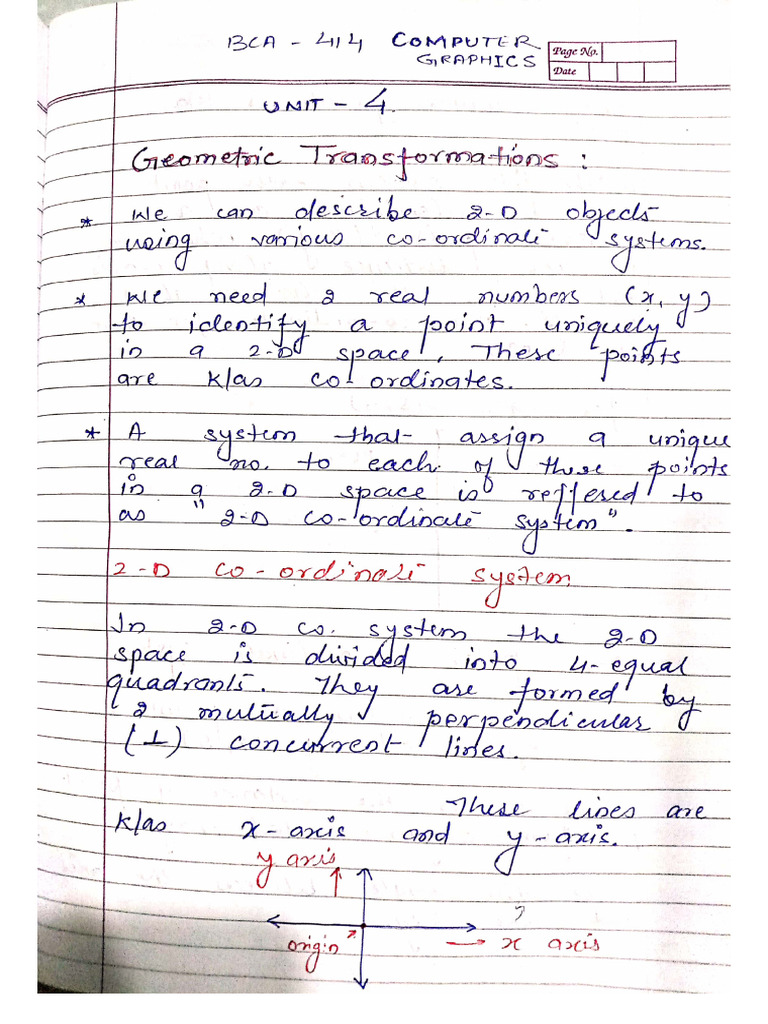 BCA - 414 COMPUTER
GRAPHICS
Page No.
Date
UNIT - 4.
Geometric Transformations :
* We can describe 2-D objects
using various co-ordinate systems.
* We need 2 real numbers (x, y)
to identify a point uniquely
in a 2-D space, These points
are k/as co-ordinates.
* A system that assign a unique
real no. to each of these points
in a 2-D space is reffered to
as "2-D co-ordinate system".
2-D co-ordinate system
In 2-D co. system the 2-D
space is divided into 4-equal
quadrants. They are formed by
2 mutually perpendicular
(⊥) concurrent lines.
These lines are
k/as x-axis and y-axis.
y axis
origin
x axis